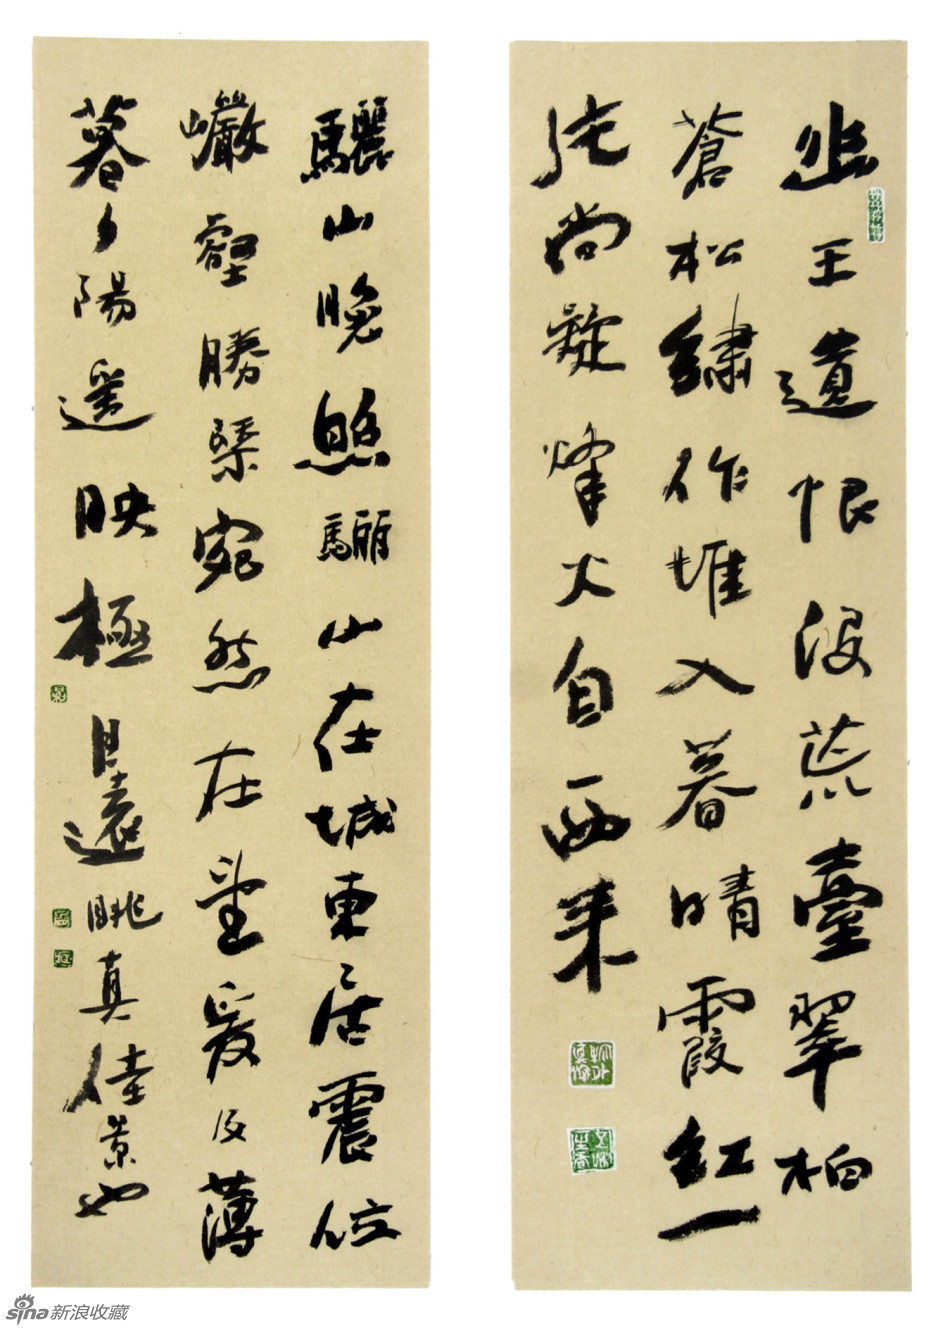 幽王遺恨没荒臺翠柏
蒼松繡作堆入暮晴霞紅一
片尚疑烽火自西来
驪山晚照驪山在城東居震位
巘巖壑勝槩宛然在望爰及薄
暮夕陽遥映極
目遠眺真佳景也
sina新浪收藏